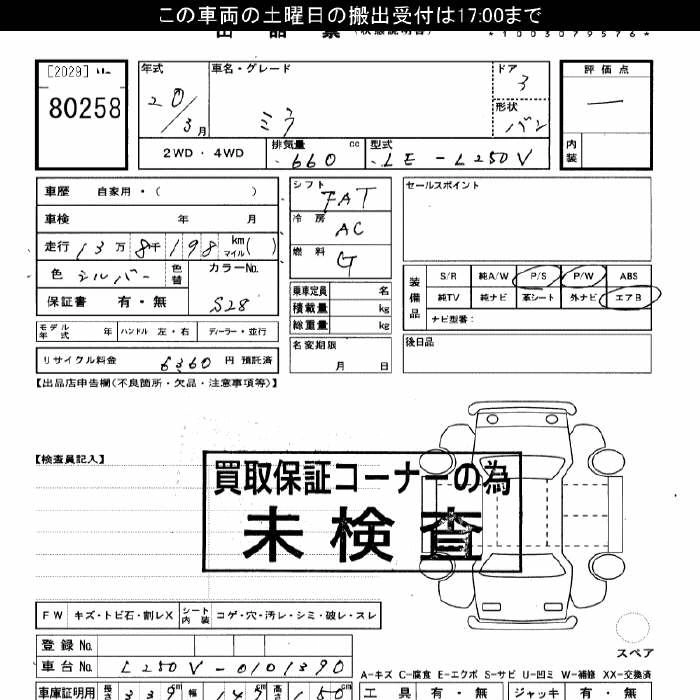 この車両の土曜日の搬出受付は17:00まで
*1003079576*
[2029]
80258
年式 20/3月
車名・グレード ミラ
ドア 3
形状 バン
評価点 —
内装
2WD・4WD
排気量 660 cc
型式 LE-L250V
車歴 自家用・( )
車検 年 月
走行 13万8千198 km マイル( )
色 シルバー 色替
カラーNo. S28
保証書 有・無
モデル年式 年 ハンドル 左・右 ディーラー・並行
リサイクル料金 6360 円 預託済
シフト FAT
冷房 AC
燃料 G
乗車定員 名
積載量 kg
総重量 kg
名変期限 月 日
セールスポイント
装備品
S/R 純A/W P/S P/W ABS
純TV 純ナビ 革シート 外ナビ エアB
ナビ型番:
後日品
【出品店申告欄(不良箇所・欠品・注意事項等)】
【検査員記入】
買取保証コーナーの為
未検査
FW キズ・トビ石・割レX シート内装 コゲ・穴・汚レ・シミ・破レ・スレ
スペア
登録No.
車台No. L250V-0101390
A-キズ C-腐食 E-エクボ S-サビ U-凹ミ W-補修 XX-交換済
車庫証明用 長さ 339cm 幅 147cm 高さ 150cm
工具 有・無 ジャッキ 有・無